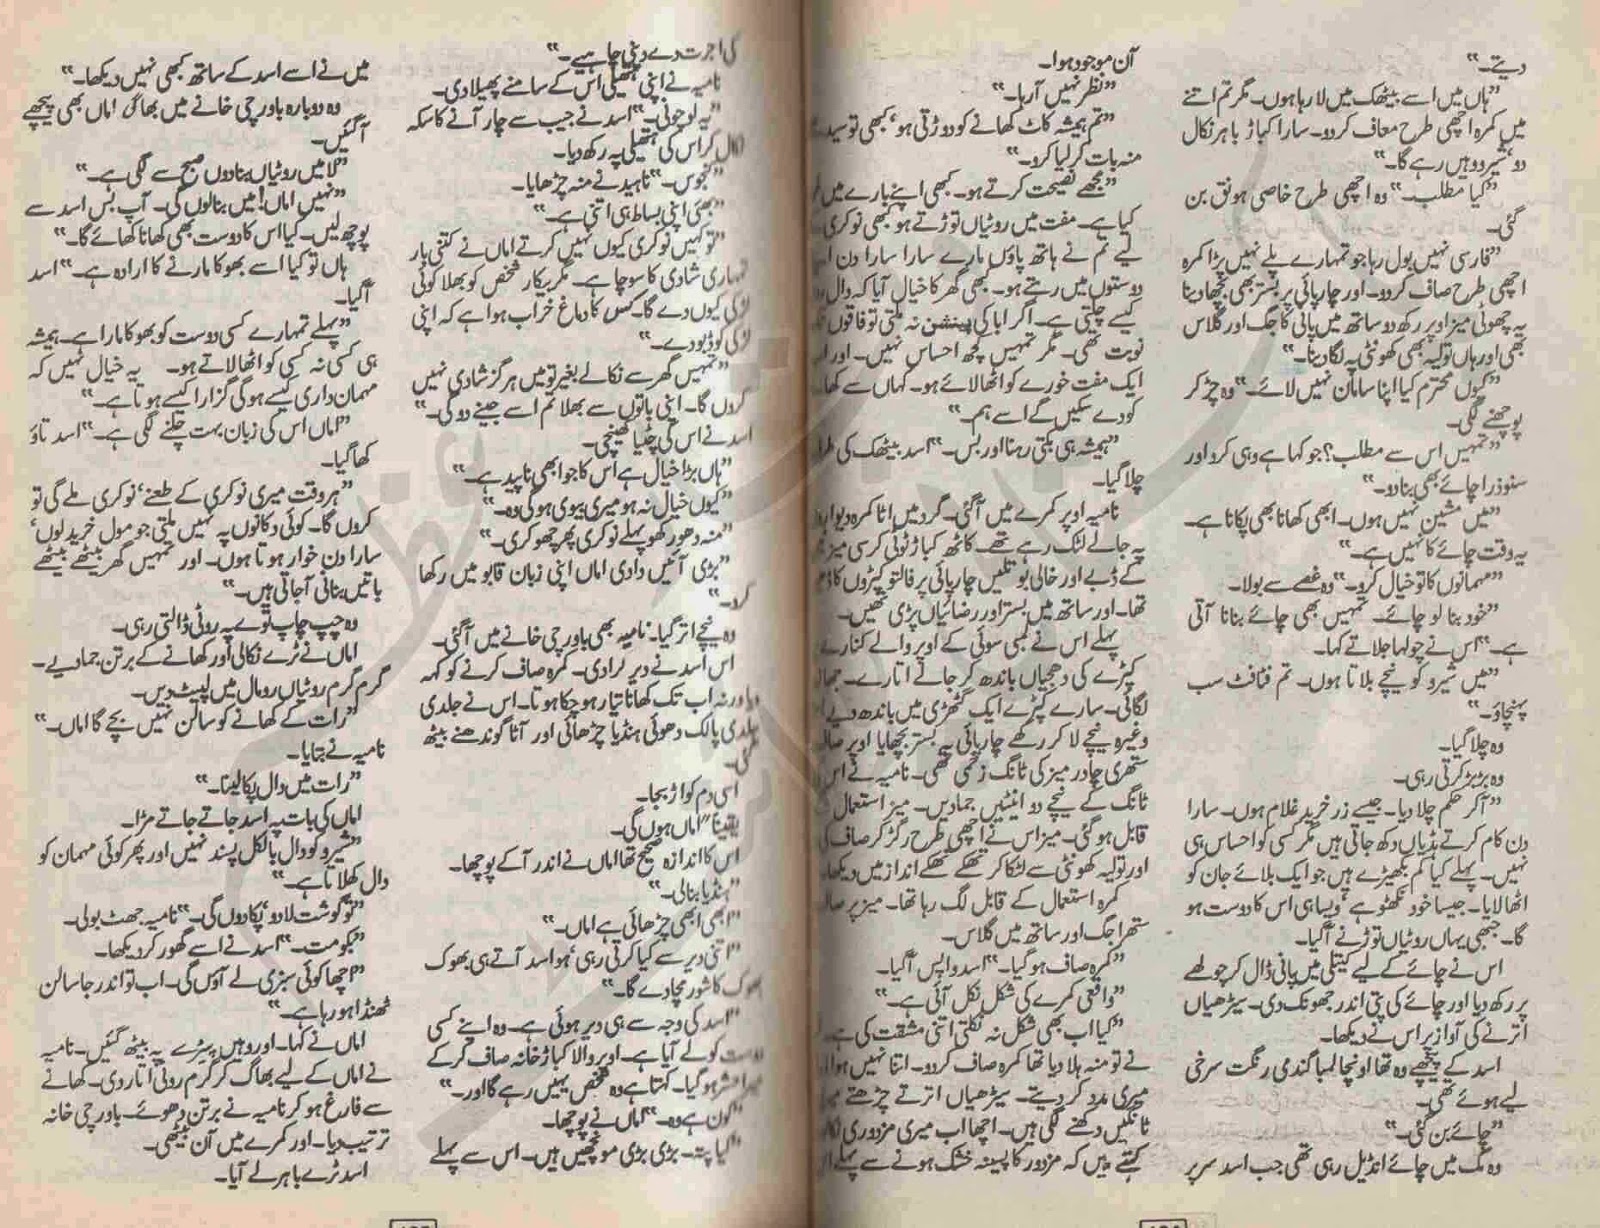 دیتے۔"
"ہاں میں اسے بیٹھک میں لا رہا ہوں۔ مگر تم اتنے
میں کمرہ اچھی طرح معاف کردو۔ سارا کباڑ باہر نکال
دو، شیرو وہیں رہے گا۔"
"کیا مطلب۔" وہ اچھی طرح خاصی ہونق بن
گئی۔
"فارسی نہیں بول رہا جو تمہارے پلے نہیں پڑا کمرہ
اچھی طرح صاف کردو۔ اور چارپائی پر بستر بھی بچھا دینا
یہ چھوٹی میز اوپر رکھ دو ساتھ میں پانی کا جگ اور گلاس
بھی اور ہاں تولیہ بھی کھونٹی پہ لگا دینا۔"
"کیوں محترم کیا اپنا سامان نہیں لائے۔" وہ چڑ کر
پوچھنے لگی۔
"تمہیں اس سے مطلب؟ جو کہا ہے وہی کرو اور
سنو ذرا چائے بھی بنا دو۔"
"میں مشین نہیں ہوں۔ ابھی کھانا بھی پکانا ہے۔
یہ وقت چائے کا نہیں ہے۔"
"مہمانوں کا تو خیال کرو۔" وہ غصے سے بولا۔
"خود بنا لو چائے۔ تمہیں بھی چائے بنانا آتی
ہے۔" اس نے چولہا جلاتے کہا۔
"میں شیرو کو نیچے بلاتا ہوں۔ تم فٹافٹ سب
پہنچاؤ۔"
وہ چلا گیا۔
وہ بڑبڑ کرتی رہی۔
"آکر حکم چلا دیا۔ جیسے زر خرید غلام ہوں۔ سارا
دن کام کرتے ہڈیاں دکھ جاتی ہیں مگر کسی کو احساس ہی
نہیں۔ پہلے کیا کم بکھیڑے ہیں جو ایک بلائے جان کو
اٹھا لایا۔ جیسا خود نکھٹو ہے، ویسا ہی اس کا دوست ہو
گا۔ جبھی یہاں روٹیاں توڑنے آ گیا۔
اس نے چائے کے لیے کیتلی میں پانی ڈال کر چولہے
پر رکھ دیا اور چائے کی پتی اندر جھونک دی۔ سیڑھیاں
اترنے کی آواز پر اس نے دیکھا۔
اسد کے پیچھے وہ تھا اونچا لمبا گندمی رنگت سرخی
لیے ہوئے تھی۔
"چائے بن گئی۔"
وہ مگ میں چائے انڈیل رہی تھی جب اسد سر پر
آن موجود ہوا۔
"نظر نہیں آ رہا۔"
"تم ہمیشہ کاٹ کھانے کو دوڑتی ہو، کبھی تو
منہ بات کر لیا کرو۔"
"مجھے نصیحت کرتے ہو۔ کبھی اپنے بارے میں
کیا ہے۔ مفت میں روٹیاں توڑتے ہو کبھی نوکری
لیے تم نے ہاتھ پاؤں مارے سارا سارا دن
دوستوں میں رہتے ہو۔ کبھی گھر کا خیال آیا کہ دال
کیسے چلتی ہے۔ اگر ابا کی پینشن نہ ملتی تو فاقوں
نوبت تھی۔ مگر تمہیں کچھ احساس نہیں۔ اور
ایک مفت خورے کو اٹھا لائے ہو۔ کہاں سے
کو دے سکیں گے اسے ہم۔"
"ہمیشہ ہی بکتی رہنا اور بس۔" اسد بیٹھک کی
چلا گیا۔
نامیہ اوپر کمرے میں آ گئی۔ گرد میں اٹا کمرہ
پہ جالے لٹک رہے تھے۔ کاٹھ کباڑ ٹوٹی کرسی میز
کے ڈبے اور خالی بوتلیں چارپائی پر فالتو کپڑوں کا
تھا۔ اور ساتھ میں بستر اور رضائیاں پڑی تھیں۔
پہلے اس نے لمبی سوئی کے اوپر والے کنارے
کپڑے کی دھجیاں باندھ کر جالے اتارے۔
لگائی۔ سارے کپڑے ایک گٹھڑی میں باندھ دیے
وغیرہ نیچے لا کر رکھے چارپائی پہ بستر بچھایا اوپر
ستھری چادر میز کی ٹانگ زخمی تھی۔ نامیہ نے اس
ٹانگ کے نیچے دو اینٹیں جما دیں۔ میز استعمال
قابل ہو گئی۔ میز اس نے اچھی طرح رگڑ کر صاف کی
اور تولیہ کھونٹی سے لٹکا کر تھکے تھکے انداز میں دیکھا۔
کمرہ استعمال کے قابل لگ رہا تھا۔ میز پر
ستھرا جگ اور ساتھ میں گلاس۔
"کمرہ صاف ہو گیا۔" اسد واپس آ گیا۔
"واقعی کمرے کی شکل نکل آئی ہے۔"
"کیا اب بھی شکل نہ نکلتی اتنی مشقت کی ہے۔
نے تو منہ ہلا دیا تھا کمرہ صاف کردو۔ اتنا نہیں ہوا
میری مدد کر دیتے۔ سیڑھیاں اترتے چڑھتے
ٹانگیں دکھنے لگی ہیں۔ اچھا اب میری مزدوری
کہتے ہیں کہ مزدور کا پسینہ خشک ہونے سے پہلے
کی اجرت دے دینی چاہیے۔"
نامیہ نے اپنی ہتھیلی اس کے سامنے پھیلا دی۔
"یہ لو چونی۔" اسد نے جیب سے چار آنے کا سکہ
نکال کر اس کی ہتھیلی پہ رکھ دیا۔
"کنجوس۔" ناہید نے منہ چڑھایا۔
"بھئی اپنی بساط ہی اتنی ہے۔"
"تو کہیں نوکری کیوں نہیں کرتے اماں نے کتنی بار
تمہاری شادی کا سوچا ہے۔ مگر بیکار شخص کو بھلا کوئی
لڑکی کیوں دے گا۔ کس کا دماغ خراب ہوا ہے کہ اپنی
لڑکی کو ڈبو دے۔"
"تمہیں گھر سے نکالے بغیر تو میں ہرگز شادی نہیں
کروں گا۔ اپنی باتوں سے بھلا تم اسے جینے دو گی۔"
اسد نے اس کی چٹیا کھینچی۔
"ہاں بڑا خیال ہے اس کا جو ابھی ناپید ہے۔"
"کیوں خیال نہ ہو میری بیوی ہو گی وہ۔"
"منہ دھو رکھو پہلے نوکری پھر چھوکری۔"
"بڑی آئیں دادی اماں اپنی زبان قابو میں رکھا
کرو۔"
وہ نیچے اتر گیا۔ نامیہ بھی باورچی خانے میں آ گئی۔
اس اسد نے دیر کرا دی۔ کمرہ صاف کرنے کو کہہ
دیا ورنہ اب تک کھانا تیار ہو چکا ہوتا۔ اس نے جلدی
جلدی پالک دھوئی ہنڈیا چڑھائی اور آٹا گوندھنے بیٹھ
گئی۔
اسی دم کواڑ بجا۔
یقیناً" اماں ہوں گی۔
اس کا اندازہ صحیح تھا اماں نے اندر آ کے پوچھا۔
"ہنڈیا بنالی۔"
"ابھی ابھی چڑھائی ہے اماں۔"
"اتنی دیر سے کیا کرتی رہی ہو، اسد آتے ہی بھوک
بھوک کا شور مچا دے گا۔"
"اسد کی وجہ سے ہی دیر ہوئی ہے۔ وہ اپنے کسی
دوست کو لے آیا ہے۔ اوپر والا کباڑ خانہ صاف کر کے
ہو گیا۔ کہتا ہے وہ شخص یہیں رہے گا اور۔"
"کون ہے وہ۔" اماں نے پوچھا۔
"کیا پتہ۔ بڑی بڑی مونچھیں ہیں۔ اس سے پہلے
میں نے اسے اسد کے ساتھ کبھی نہیں دیکھا۔"
وہ دوبارہ باورچی خانے میں بھاگی اماں بھی پیچھے
آ گئیں۔
"لا میں روٹیاں بنا دوں صبح سے لگی ہے۔"
"نہیں اماں! میں بنالوں گی۔ آپ بس اسد سے
پوچھ لیں۔ کیا اس کا دوست بھی کھانا کھائے گا۔"
ہاں تو کیا اسے بھوکا مارنے کا ارادہ ہے۔" اسد
آ گیا۔
"پہلے تمہارے کسی دوست کو بھوکا مارا ہے۔ ہمیشہ
ہی کسی نہ کسی کو اٹھا لاتے ہو۔ یہ خیال نہیں کہ
مہمان داری کیسے ہوگی گزارا کیسے ہوتا ہے۔"
"اماں اس کی زبان بہت چلنے لگی ہے۔" اسد تاؤ
کھا گیا۔
"ہر وقت میری نوکری کے طعنے، نوکری ملے گی تو
کروں گا۔ کوئی دکانوں پہ نہیں ملتی جو مول خرید لوں،
سارا دن خوار ہوتا ہوں۔ اور تمہیں گھر بیٹھے بیٹھے
باتیں بنانی آ جاتی ہیں۔"
وہ چپ چاپ توے پہ روٹی ڈالتی رہی۔
اماں نے ٹرے نکالی اور کھانے کے برتن جما دیے۔
گرم گرم روٹیاں رومال میں لپیٹ دیں۔
"رات کے کھانے کو سالن نہیں بچے گا اماں۔"
نامیہ نے بتایا۔
"رات میں دال پکا لینا۔"
اماں کی بات پہ اسد جاتے جاتے مڑا۔
"شیرو کو دال بالکل پسند نہیں اور پھر کوئی مہمان کو
دال کھلاتا ہے۔"
"تو گوشت لا دو، پکا دوں گی۔" نامیہ جھٹ بولی۔
"بکو مت۔" اسد نے اسے گھور کر دیکھا۔
"اچھا کوئی سبزی لے آؤں گی۔ اب تو اندر جا سالن
ٹھنڈا ہو رہا ہے۔"
اماں نے کہا۔ اور وہیں پیڑے پہ بیٹھ گئیں۔ نامیہ
نے اماں کے لیے بھاگ کر گرم روٹی اتار دی۔ کھانے
سے فارغ ہو کر نامیہ نے برتن دھوئے۔ باورچی خانہ
ترتیب دیا۔ اور کمرے میں آن بیٹھی۔
اسد ٹرے باہر لے آیا۔